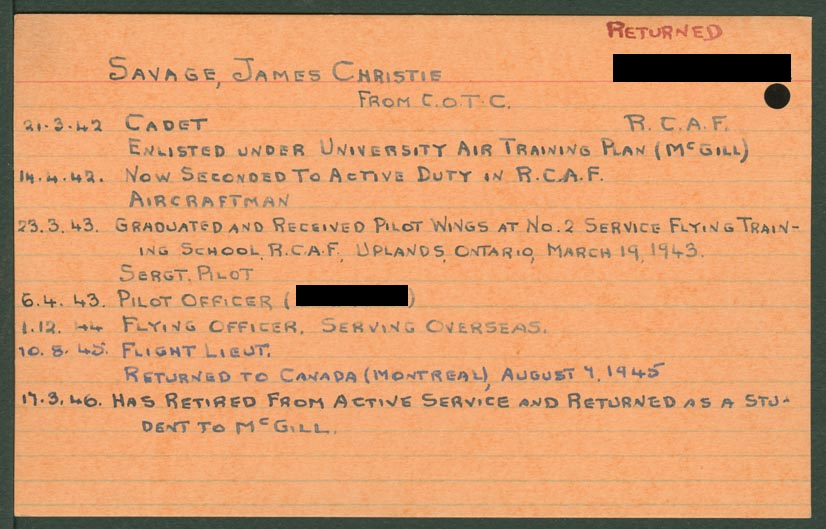 RETURNED
SAVAGE, JAMES CHRISTIE
FROM C.O.T.C.
21.3.42 CADET R.C.A.F.
ENLISTED UNDER UNIVERSITY AIR TRAINING PLAN (MCGILL)
14.4.42. NOW SECONDED TO ACTIVE DUTY IN R.C.A.F.
AIRCRAFTMAN
23.3.43. GRADUATED AND RECEIVED PILOT WINGS AT NO.2 SERVICE FLYING TRAIN-
ING SCHOOL, R.C.A.F., UPLANDS, ONTARIO, MARCH 19, 1943.
SERGT. PILOT
6.4.43. PILOT OFFICER ( )
1.12.44 FLYING OFFICER. SERVING OVERSEAS.
10.8.45. FLIGHT LIEUT.
RETURNED TO CANADA (MONTREAL), AUGUST 7, 1945
17.3.46. HAS RETIRED FROM ACTIVE SERVICE AND RETURNED AS A STU-
DENT TO MCGILL.